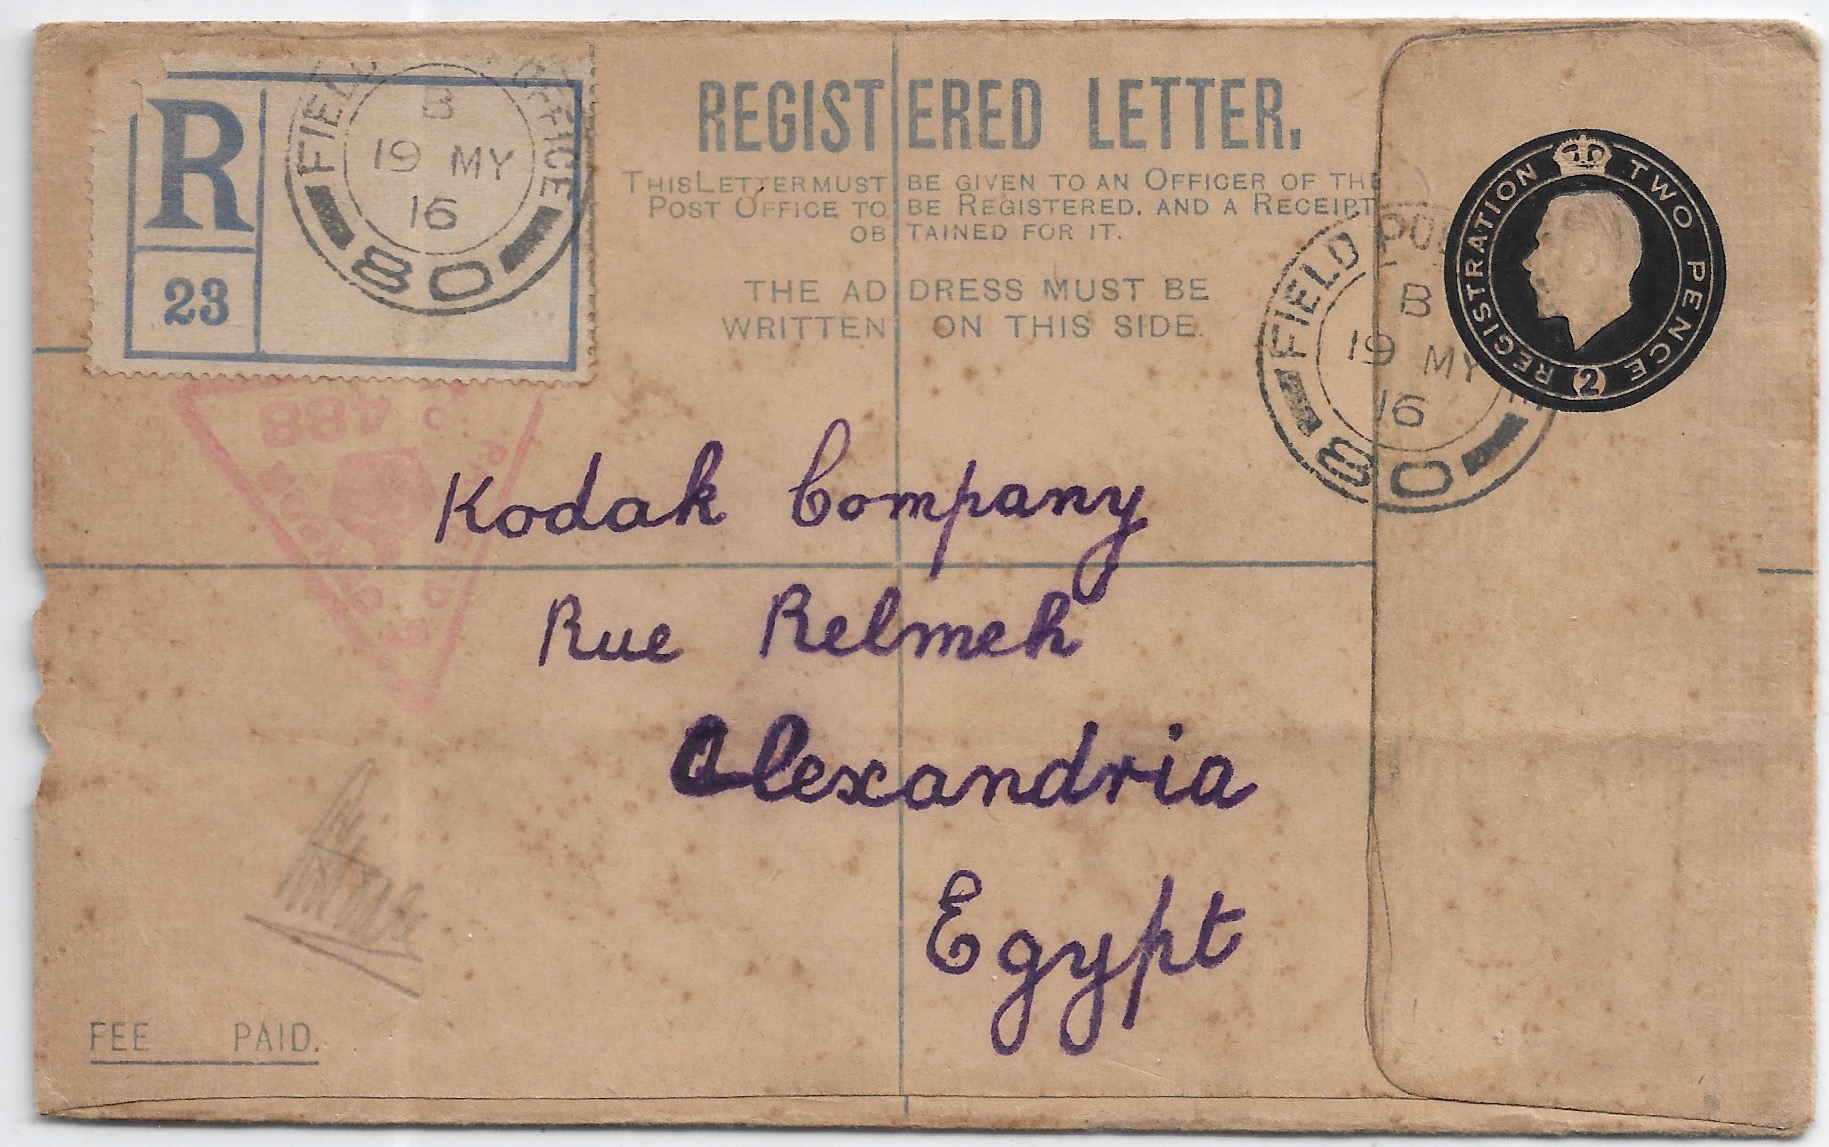 R
23
FIELD OFFICE
B
19 MY
16
80
REGISTERED LETTER.
THIS LETTER MUST BE GIVEN TO AN OFFICER OF THE
POST OFFICE TO BE REGISTERED, AND A RECEIPT
OBTAINED FOR IT.
THE ADDRESS MUST BE
WRITTEN ON THIS SIDE.
REGISTRATION TWO PENCE
2
FIELD PO
B
19 MY
16
80
PASSED
BY CENSOR
No 488
Kodak Company
Rue Relmeh
Alexandria
Egypt
FEE PAID.